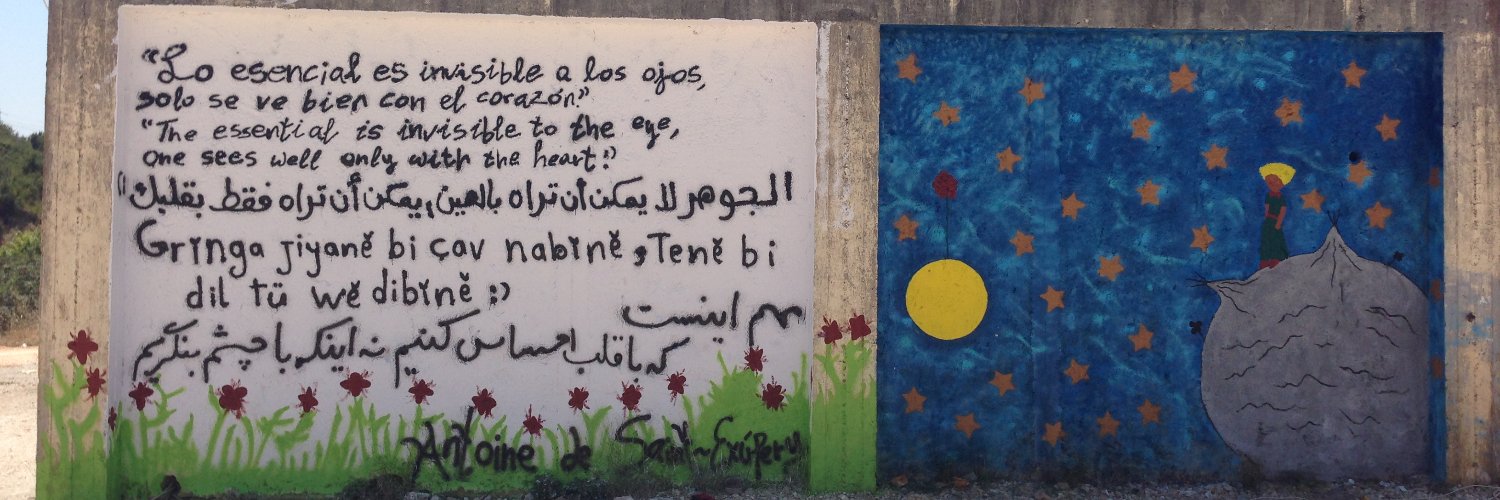 "Lo esencial es invisible a los ojos,
solo se ve bien con el corazón."
"The essential is invisible to the eye,
one sees well only with the heart."
"الجوهر لا يمكن أن تراه بالعين, يمكن أن تراه فقط بقلبك"
Gringa jiyanê bi çav nabînê, Tenê bi
dil tû wê dibînê :)
مهم اینست
که با قلب احساس کنیم نه اینکه با چشم بنگریم
Antoine de Saint-Exúpery